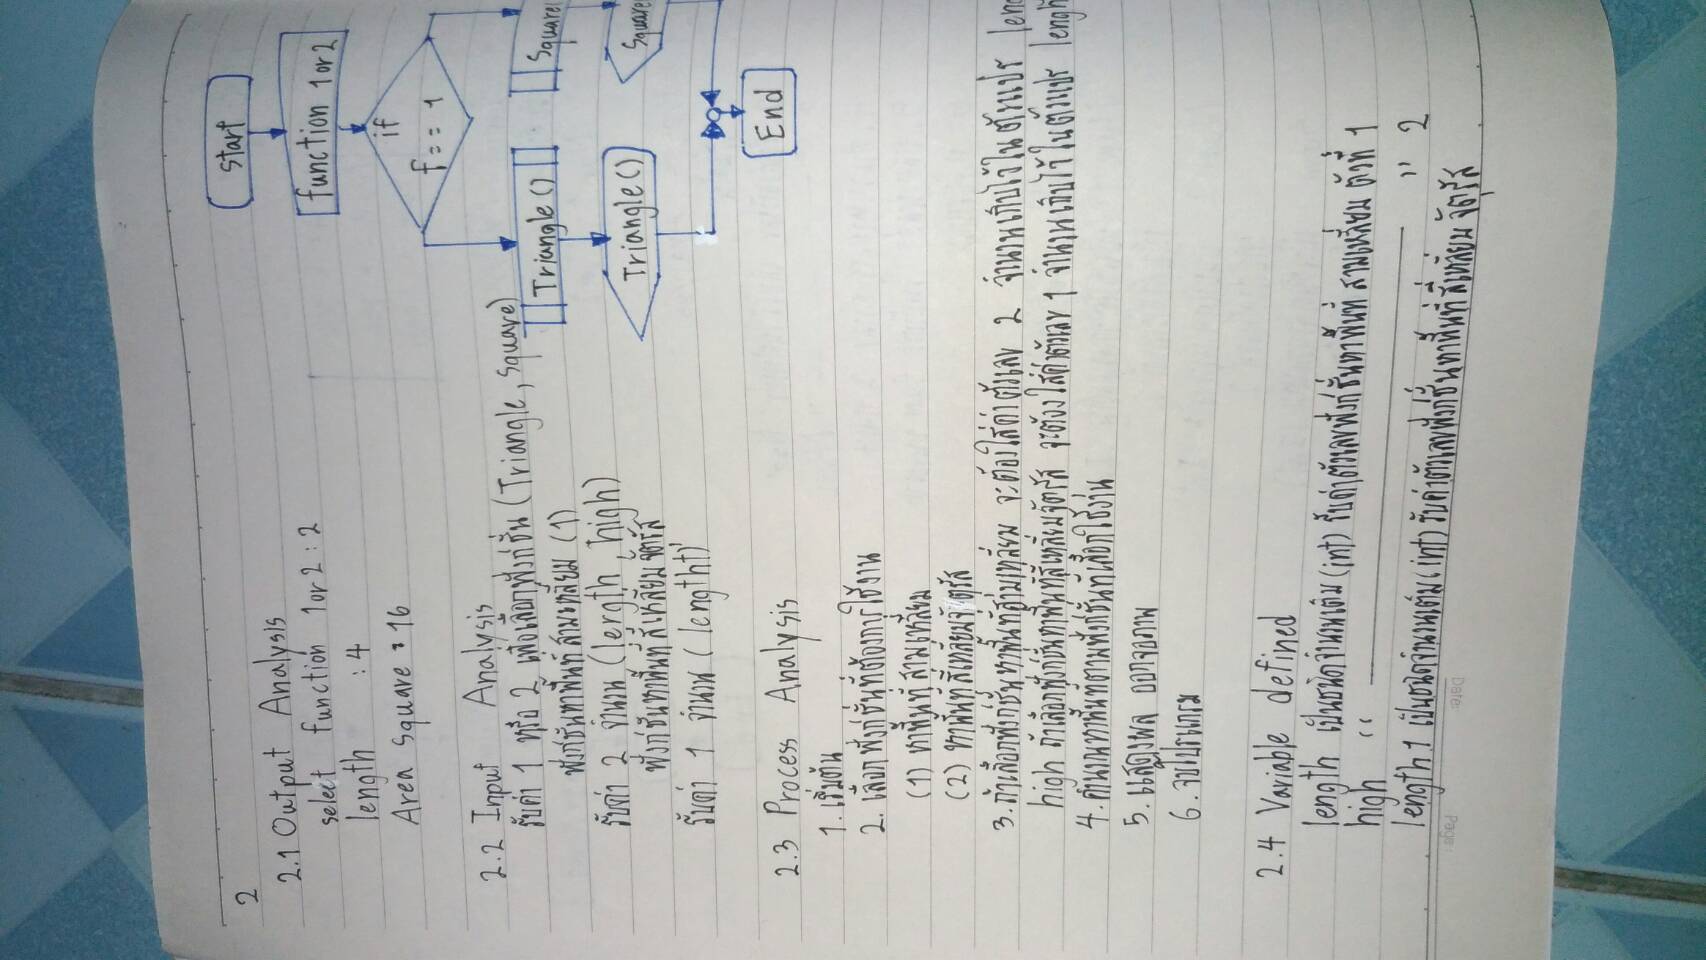 2
2.1 Output Analysis
select function 1 or 2 : 2
length : 4
Area square = 16
2.2 Input Analysis
รับค่า 1 หรือ 2 เพื่อเลือกฟังก์ชั่น (Triangle, square)
ฟังก์ชั่นหาพื้นที่สามเหลี่ยม (1)
รับค่า 2 จำนวน (length, high)
ฟังก์ชั่นหาพื้นที่สี่เหลี่ยมจัตุรัส
รับค่า 1 จำนวน (length1)
2.3 Process Analysis
1. เริ่มต้น
2. เลือกฟังก์ชั่นที่ต้องการใช้งาน
(1) หาพื้นที่สามเหลี่ยม
(2) หาพื้นที่สี่เหลี่ยมจัตุรัส
3. ถ้าเลือกฟังก์ชั่นหาพื้นที่สามเหลี่ยม จะต้องใส่ค่าตัวเลข 2 จำนวนเก็บไว้ในตัวแปร
high ถ้าเลือกฟังก์ชั่นหาพื้นที่สี่เหลี่ยมจัตุรัส จะต้องใส่ค่าตัวเลข 1 จำนวนเก็บไว้ในตัวแปร
4. คำนวนหาพื้นที่ตามฟังก์ชั่นที่เลือกใช้งาน
5. แสดงผล ออกจอภาพ
6. จบโปรแกรม
2.4 Variable defined
length เป็นชนิดจำนวนเต็ม (int) รับค่าตัวเลขฟังก์ชั่นหาพื้นที่ สามเหลี่ยม ตัวที่ 1
high " " 2
length1 เป็นชนิดจำนวนเต็ม (int) รับค่าตัวเลขฟังก์ชั่นหาพื้นที่สี่เหลี่ยม จัตุรัส
start
function 1 or 2
if
f == 1
Triangle()
Square(
Triangle()
Square
End
Date:
Page: